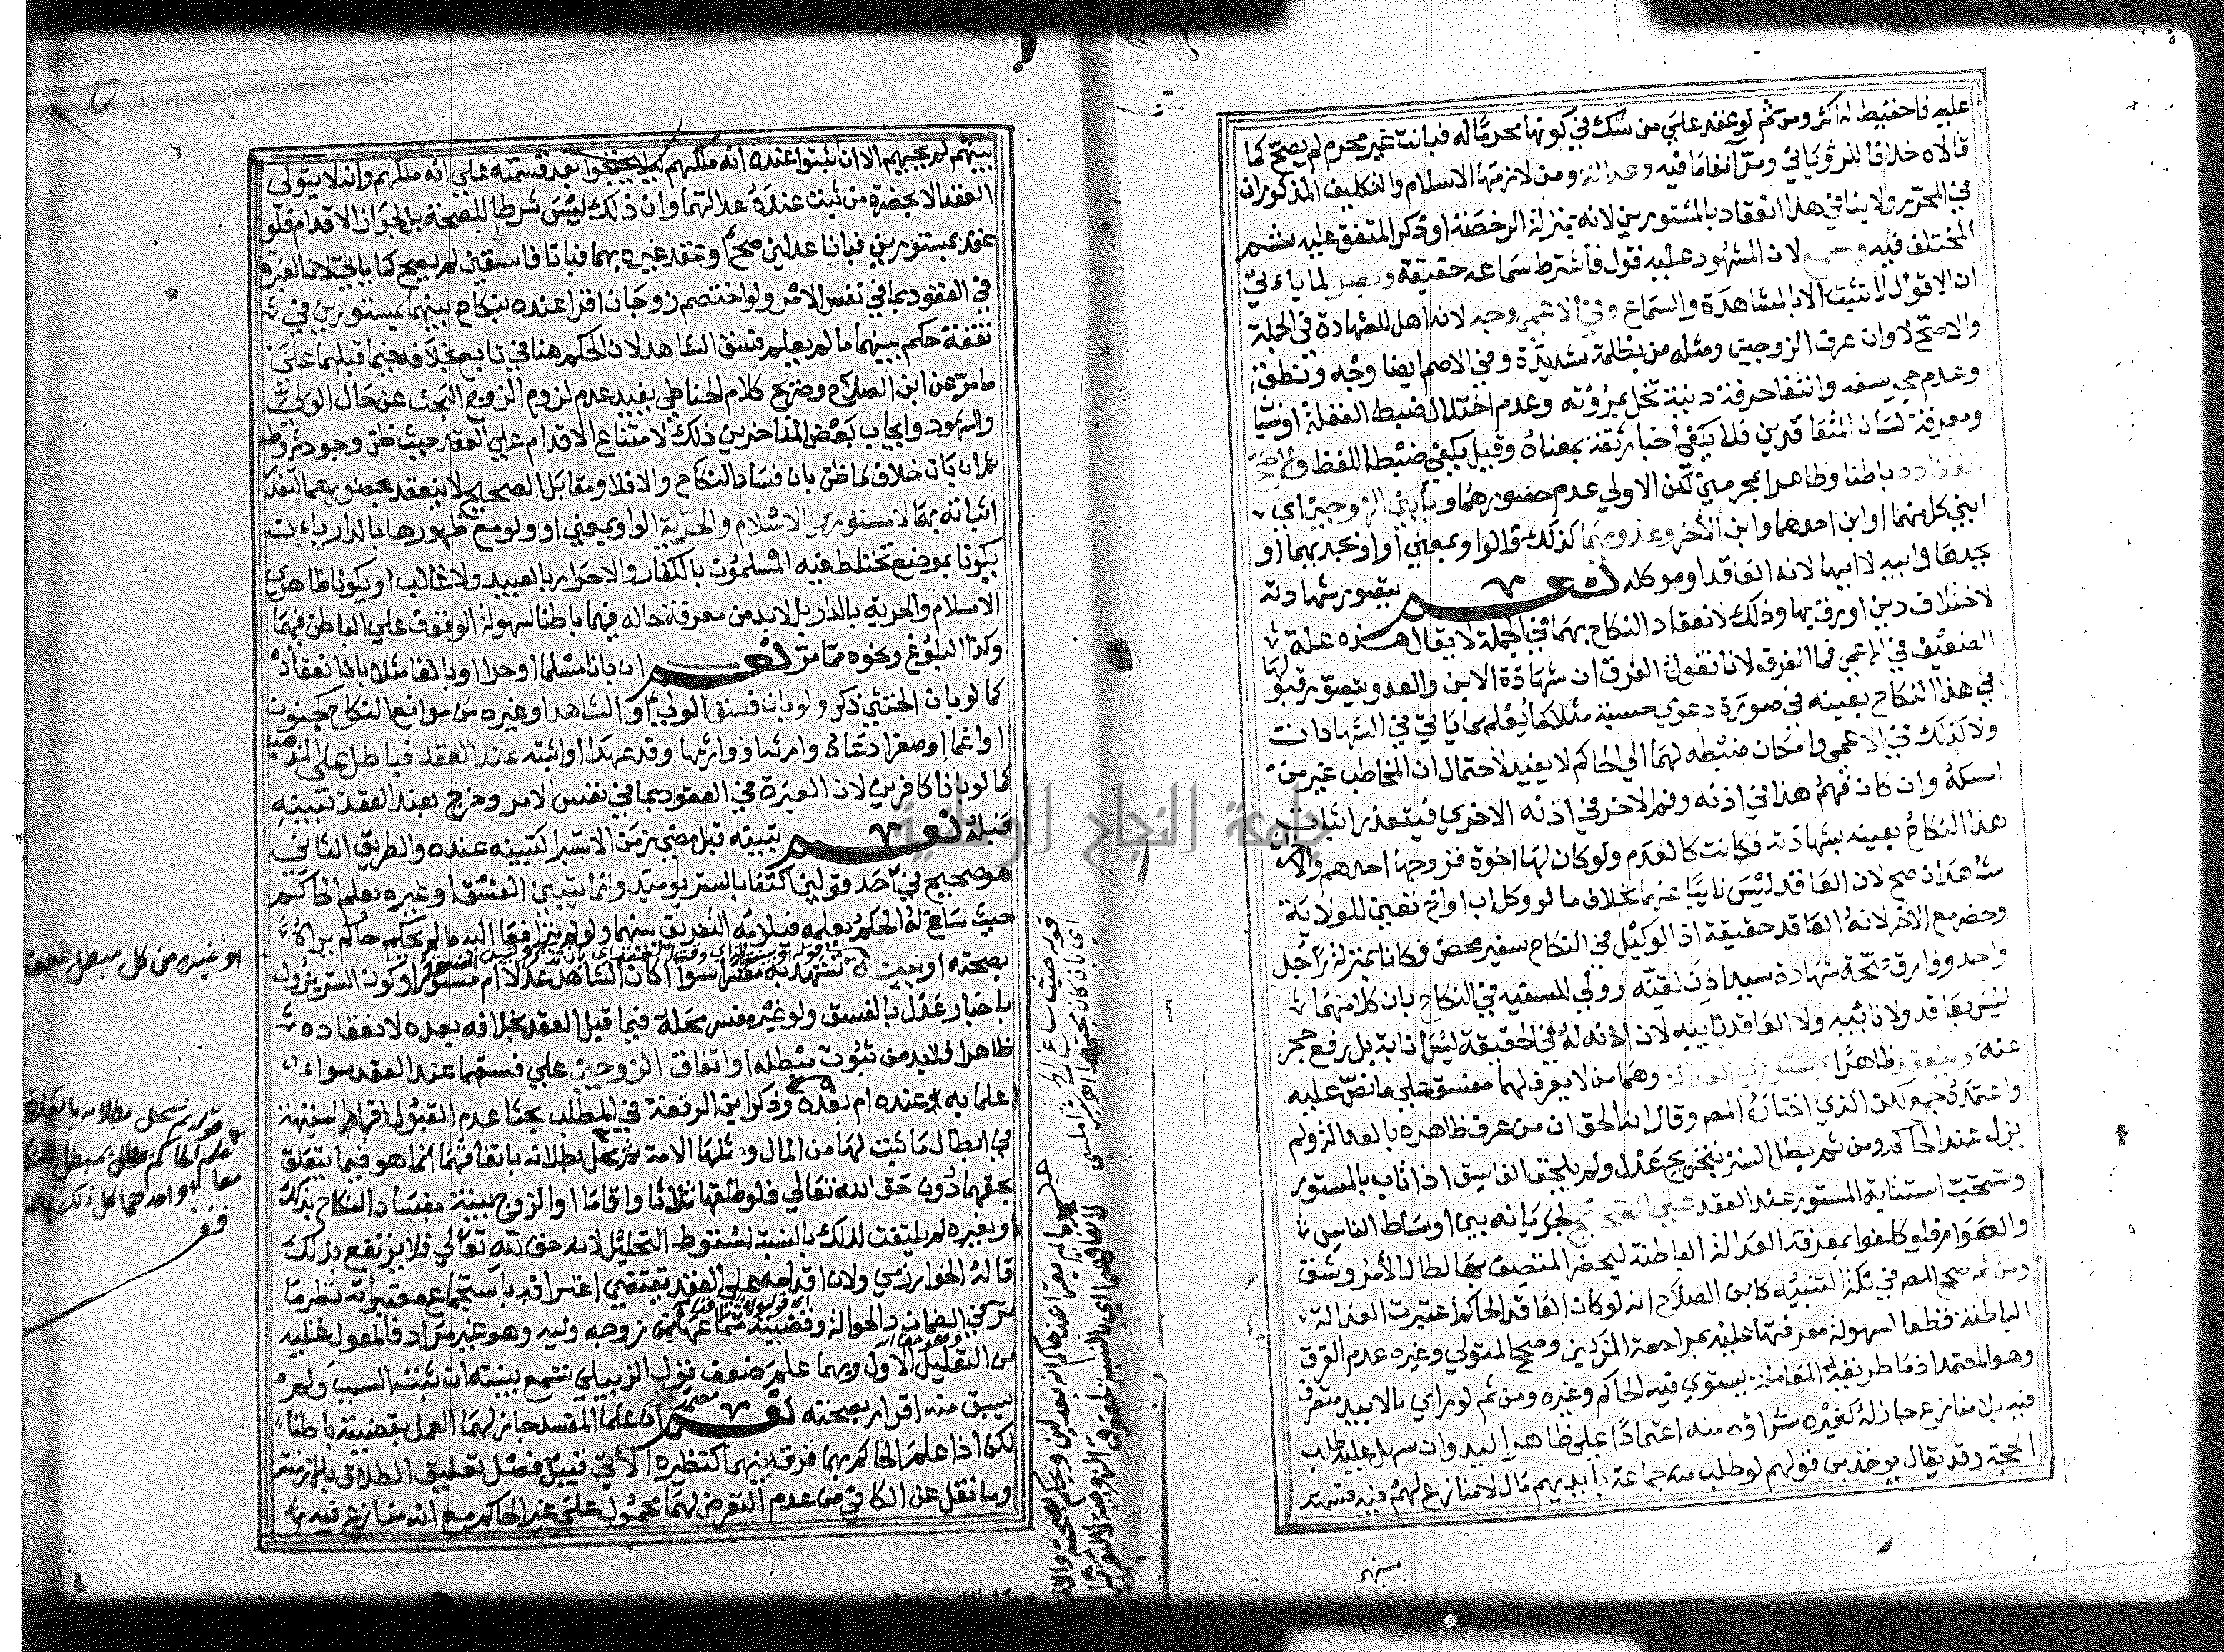 عليه فاحتيط له اكثر ومن ثم لو عقد علي من شك في كونها محرما له فبانت غير محرم لم يصح كما
قالاه خلافا للروياني ومر آنفا ما فيه وعدالة ومن لازمها الاسلام والتكليف المذكوران
في المحرر ولا ينافي هذا انعقاده بالمستورين لانه بمنزلة الرخصة او ذكر المتفق عليه ثم
المختلف فيه وسمع لان المشهود عليه قول فاشترط سماعه حقيقة وبصر لما ياءتي
ان الاقوال لا تثبت الا بالمشاهدة والسماع وفي الاعمي وجه لانه اهل للشهادة في الجملة
والاصح لا وان عرف الزوجين ومثله من بظلمة شديدة وفي الاصم ايضا وجه ونطق
وعدم حجر سفه وانتفا حرفة دنية تخل بمروته وعدم اختلال ضبط لغفلة او نسيا
ومعرفة لسان المتعاقدين فلا يكفي اخبار ثقة بمعناه وقيل يكفي ضبط اللفظ والاصح
انعقاده باطنا وظاهرا بمحرمين لكن الاولي عدم حضورهما وبابني الزوجين اي
ابني كل منهما او ابن احدهما وابن الآخر وعدويهما كذلك والواو بمعني او او بجديهما او
بجدها وابيه لا ابيها لانه العاقد او موكله نعم يتصور شهادته
لاختلاف دين او رق بها وذلك لانعقاد النكاح بهما في الجملة لا يقال هذه علة
الضعيف في الاعمي فما الفرق لانا نقول الفرق ان شهادة الابن والعدو يتصور قبولها
في هذا النكاح بعينه في صورة دعوي حسبة مثلا كما يعلم مما ياتي في الشهادات
ولا كذلك في الاعمي وامكان ضبطه لهما الي الحاكم لا يفيد لاحتمال ان المخاطب غير من
امسكه وان كان فم هذا في اذنه وفم الاخر في اذنه الاخري فيتعذر اثبات
هذا النكاح بعينه بشهادته فكانت كالعدم ولو كان لها اخوة فزوجها احدهم والآخر
شاهدان صح لان العاقد ليس نايبا عنهما بخلاف ما لو وكل اب او اخ تعين للولاية
وحضر مع الآخر لانه العاقد حقيقة اذ الوكيل في النكاح سفير محض فكانا بمنزلة رجل
واحد وفارق صحة شهادة سيد اذن لقنه وولي للسفيه في النكاح بان كلا منهما
ليس بعاقد ولا نائبه ولا العاقد نايبه لان اذنه له في الحقيقة ليس انابة بل رفع حجر
عنه وينعقد ظاهرا بمستوري العدالة وهما من لا يعرف لهما مفسق علي ما نص عليه
واعتمده جمع لكن الذي اختاره المص وقال انه الحق ان من عرف ظاهره بالعدالة ولم
يزك عند الحاكم ومن ثم بطل الستر بتجريح عدل ولم يلحق الفاسق اذا تاب بالمستور
وتستحب استتابة المستور عند العقد علي الصحيح لجريانه بين اوساط الناس
والعوام فلو كلفوا بمعرفة العدالة الباطنة ليحضر المتصف بها لطال الأمر وشق
ومن ثم صحح المص في نكت التنبيه كابن الصلاح انه لو كان العاقد الحاكم اعتبرت العدالة
الباطنة قطعا لسهولة معرفتها عليه بمراجعة المزكين وصحح المتولي وغيره عدم الفرق
وهو المعتمد اذ ما طريقه المعاملة يستوي فيه الحاكم وغيره ومن ثم لو راي مالا بيد متصرف
فيه بلا منازع جاز له كغيره شراؤه منه اعتمادا علي ظاهر اليد وان سهل عليه طلب
الحجة وقد يقال يوخذ من قولهم لو طلب منه جماعة بايديهم مال لا منازع لهم فيه قسمته
بينهم
بينهم لم يجبهم الا ان اثبتوا عنده انه ملكهم ليلا يحتجوا بعد قسمته علي انه ملكهم وانه لا يتولي
العقد الا بحضرة من ثبت عنده عدالتهما وان ذلك ليس شرطا للصحة بل لجواز الاقدام فلو
عقد بمستورين فبانا عدلين صح او عقد غيره بهما فبانا فاسقين لم يصح كما ياتي لان العبرة
في العقود بما في نفس الامر ولو اختصم زوجان اقرا عنده بنكاح بينهما بمستورين في
نفقة حكم بينهما ما لم يعلم فسق الشاهد لان الحكم هنا في تابع بخلافه فيما قبلهما علي
ما مر عن ابن الصلاح وصريح كلام الحناطي يفيد عدم لزوم الزوج البحث عن حال الولي
والشهود وايجاب بعض المتاخرين ذلك لامتناع الاقدام علي العقد حيث ظن وجود شروطه
ثم ان بان خلاف ما ظن بان فساد النكاح والا فلا ومقابل الصحيح لا ينعقد بحضورهما لتعذر
اثباته بهما لا مستوري الاسلام والحرية الواو بمعني او ولو مع ظهورها بالدار باءن
يكونا بموضع تختلط فيه المسلمون بالكفار والاحرار بالعبيد ولا غالب او يكونا ظاهري
الاسلام والحرية بالدار بل لا بد من معرفة حاله فيهما باطنا لسهولة الوقوف علي الباطن فيهما
وكذا البلوغ ونحوه مما مر نعم ان بانا مسلما او حرا او بالغا مثلا بان انعقاده
كما لو بان الخنثي ذكر ولو بان فسق الولي او الشاهد او غيره من موانع النكاح كجنون
او اغماء او صغر ادعاه وارثه او وارثها وقد عهد او اثبته عند العقد فباطل علي المذهب
كما لو بانا كافرين لان العبرة في العقود بما في نفس الامر وخرج بعند العقد تبينه
قبله نعم تبينه قبل مضي زمن الاستبرا كتبينه عنده والطريق الثاني
هو صحيح في احد قولين اكتفا بالستر يوميذ وانما يتبين الفسق او غيره بعلم الحاكم
حيث ساغ له الحكم بعلمه فيلزمه التفريق بينهما ولو لم يترافعا اليه ما لم يحكم حاكم يراه
بصحته او ببينة تشهد به مفسرا سوا اكان الشاهد عدلا ام مستورا وكون الستر يزول
باخبار عدل بالفسق ولو غير مفسر محله فيما قبل العقد بخلافه بعده لانعقاده
ظاهرا فلا بد من ثبوت مبطله او اتفاق الزوجين علي فسقهما عند العقد سواء
اعلما به عنده ام بعده وذكر ابن الرفعة في المطلب بحثا عدم القبول اقرار السفيهة
في ابطال ما ثبت لها من المال ومثلها الامة ثم محل بطلانه باتفاقهما انما هو فيما يتعلق
بحقهما دون حق الله تعالي فلو طلقها ثلاثا واقاما او الزوج ببينة بفساد النكاح بذلك
او بغيره لم يلتفت لذلك بالنسبة لسقوط التحليل لانه حق لله تعالي فلا يرتفع بذلك
قاله الخوارزمي ولان اقدامه علي العقد يقتضي اعترافه باستجماع معتبراته نظير ما
مر في الضمان والحوالة وقضيته سماعها ممن زوجه وليه وهو غير مراد فالمعول عليه
من التعليل الأول وبهما علم ضعف قول الزبيلي تسمع بينته ان بينت السبب ولم
يسبق منه اقرار بصحته نعم ان علما المفسد جاز لهما العمل بقضيته باطنا
لكن اذا علم الحاكم بهما فرق بينهما كنظيره الآتي قبيل فصل تعليق الطلاق بالازمنة
وما نقل عن الكافي من عدم التعرض لهما محمول علي غير الحاكم مع انه منازع فيه
او غيره من كل مبطل للعقد